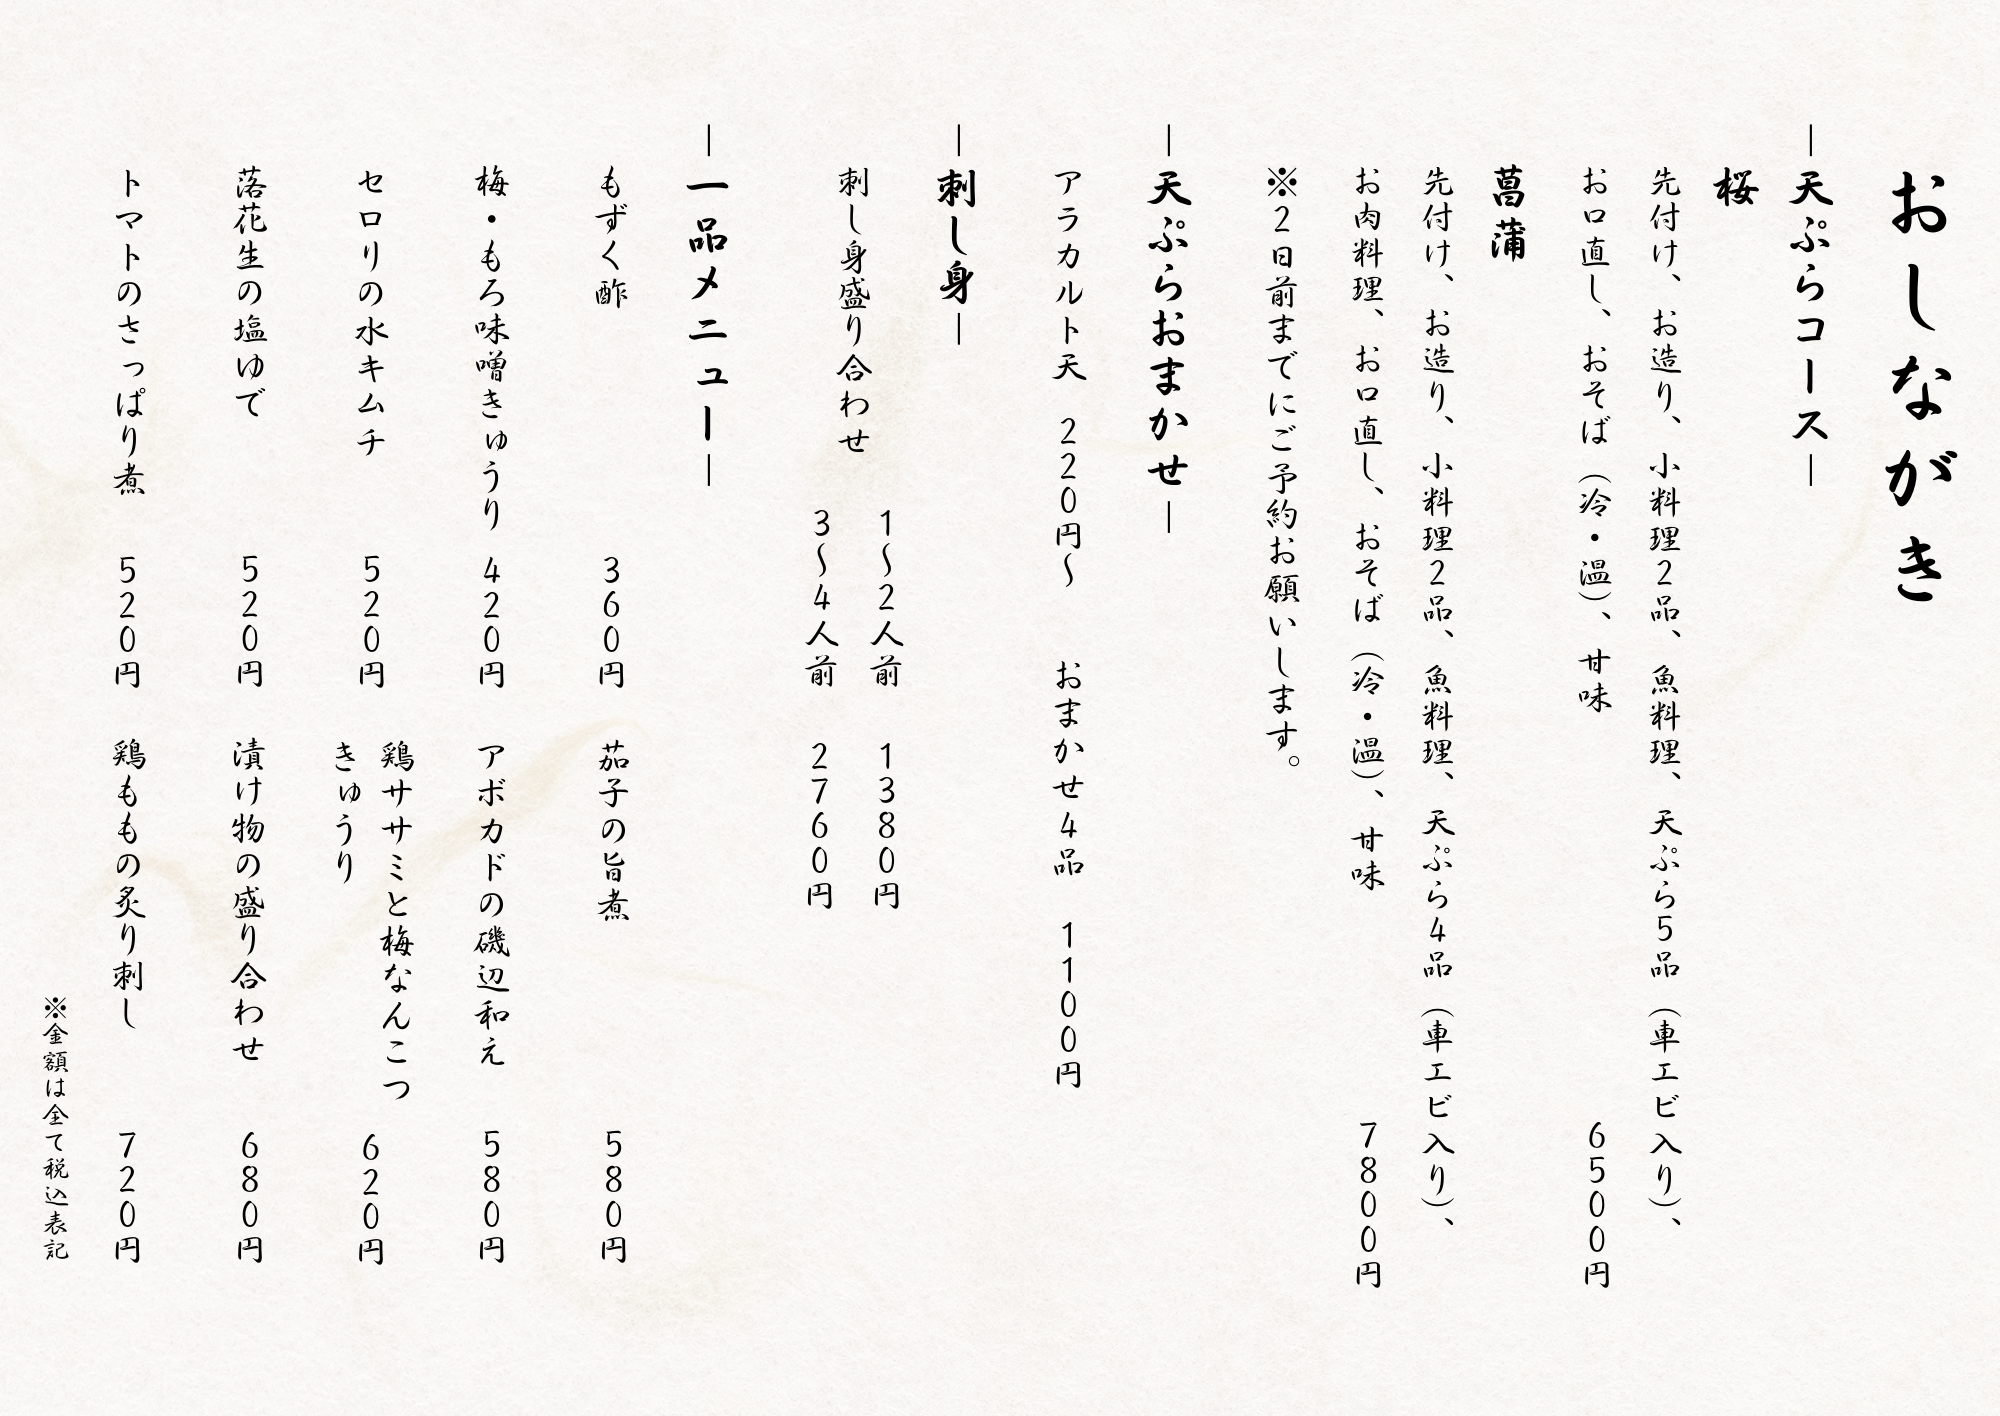 おしながき
―天ぷらコース―
桜
先付け、お造り、小料理2品、魚料理、天ぷら5品（車エビ入り）、
お口直し、おそば（冷・温）、甘味 6500円
菖蒲
先付け、お造り、小料理2品、魚料理、天ぷら4品（車エビ入り）、
お肉料理、お口直し、おそば（冷・温）、甘味 7800円
※2日前までにご予約お願いします。
―天ぷらおまかせ―
アラカルト天 220円～ おまかせ4品 1100円
―刺し身―
刺し身盛り合わせ
1～2人前 1380円
3～4人前 2760円
―一品メニュー―
もずく酢 360円 茄子の旨煮 580円
梅・もろ味噌きゅうり 420円 アボカドの磯辺和え 580円
セロリの水キムチ 520円
鶏ササミと梅なんこつ
きゅうり 620円
落花生の塩ゆで 520円 漬け物の盛り合わせ 680円
トマトのさっぱり煮 520円 鶏ももの炙り刺し 720円
※金額は全て税込表記